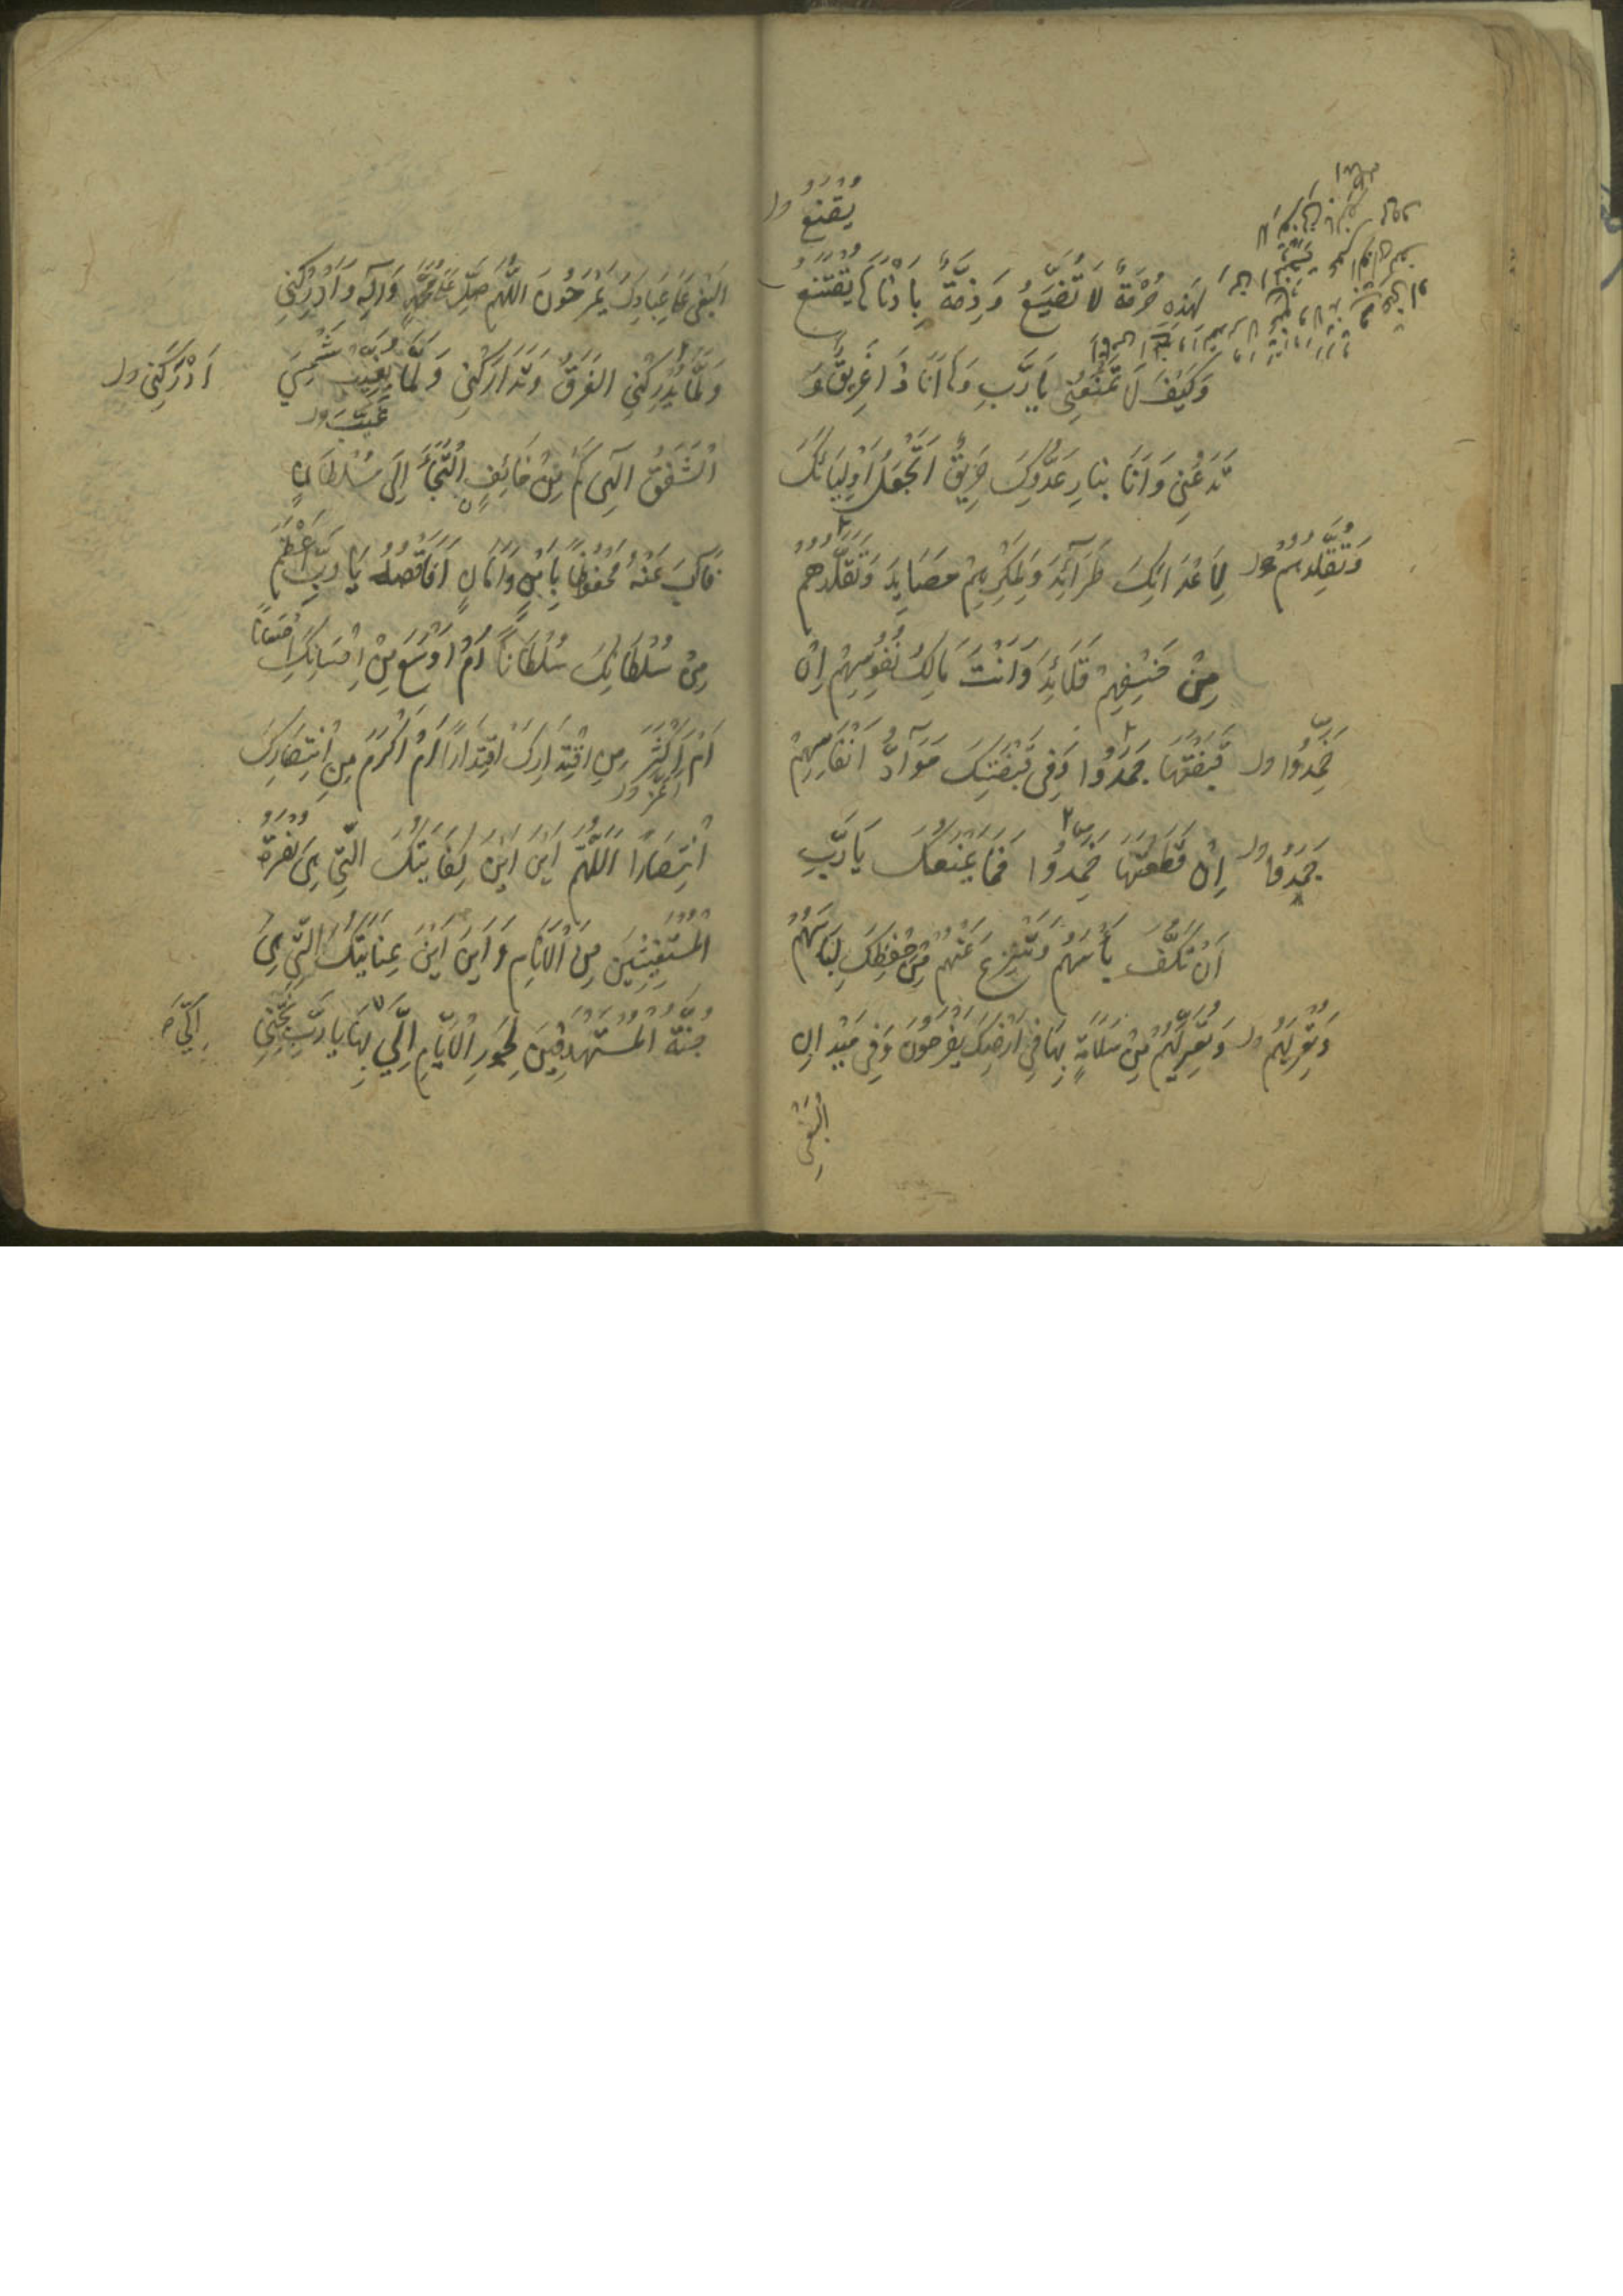 يُقْنَعُ ول
لِهَذِهِ حُرْمَةٌ لَا تُضَيَّعُ وَذِمَّةٌ بِأَدْنَاهَا يُقْتَنَعُ
وَكَيْفَ لَا تَمْنَعُنِي يَا رَبِّ وَهَا أَنَا ذَا غَرِيقٌ وَ
تَدَعُنِي وَأَنَا بِنَارِ عَدُوِّكَ حَرِيقٌ أَتَجْعَلُ أَوْلِيَائَكَ
وَتُقَلِّدُهُمْ ول لِأَعْدَائِكَ طَرَائِدَ وَلِمَكْرِهِمْ مَصَايِدَ وَتُقَلِّدُهُمْ
مِنْ خَسْفِهِمْ قَلَائِدَ وَأَنْتَ مَالِكُ نُفُوسِهِمْ إِنْ
خَمَدُوا ول قَبَضْتَهَا جَمَدُوا وَفِي قَبْضَتِكَ مَوَادُّ أَنْفَاسِهِمْ
جَمَدُوا ول إِنْ قَطَعْتَهَا خَمَدُوا فَمَا يَمْنَعُكَ يَا رَبِّ
أَنْ تَكُفَّ بَأْسَهُمْ وَتَنْزِعَ عَنْهُمْ مِنْ حِفْظِكَ لِبَاسَهُمْ
وَتُعْرِيَهُمْ ول وَتُعَرِّيَهُمْ مِنْ سَلَامَةٍ بِهَا فِي أَرْضِكَ يَفْرَحُونَ وَفِي مَيْدَانِ
الْبَغْيِ
الْبَغْيِ عَلَى عِبَادِكَ يَمْرَحُونَ اللَّهُمَّ صَلِّ عَلَى مُحَمَّدٍ وَآلِهِ وَأَدْرِكْنِي
وَلَمَّا يُدْرِكْنِي الْغَرَقُ وَتَدَارَكْنِي وَلَمَّا يُغَيِّبْ شَمْسِيَ
أَدْرَكَنِي ول
غَيَّبَ ول
الشَّفَقُ إِلَهِي كَمْ مِنْ خَائِفٍ الْتَجَأَ إِلَى سُلْطَانٍ
فَآبَ عَنْهُ مَحْفُوظًا بِأَمْنٍ وَأَمَانٍ أَفَأَقْصِدُ يَا رَبِّ أَعْظَمَ
مِنْ سُلْطَانِكَ سُلْطَانًا أَمْ أَوْسَعَ مِنْ إِحْسَانِكَ إِحْسَانًا
أَمْ أَكْثَرَ مِنِ اقْتِدَارِكَ اقْتِدَارًا أَمْ أَكْرَمَ مِنِ انْتِصَارِكَ
انْتِصَارًا اللَّهُمَّ أَيْنَ أَيْنَ كِفَايَتُكَ الَّتِي هِيَ نُصْرَةُ
الْمُسْتَغِيثِينَ مِنَ الْأَنَامِ وَأَيْنَ أَيْنَ عِنَايَتُكَ الَّتِي هِيَ
جُنَّةُ الْمُسْتَهْدَفِينَ لِجَوْرِ الْأَيَّامِ إِلَيَّ بِهَا يَا رَبِّ نَجِّنِي